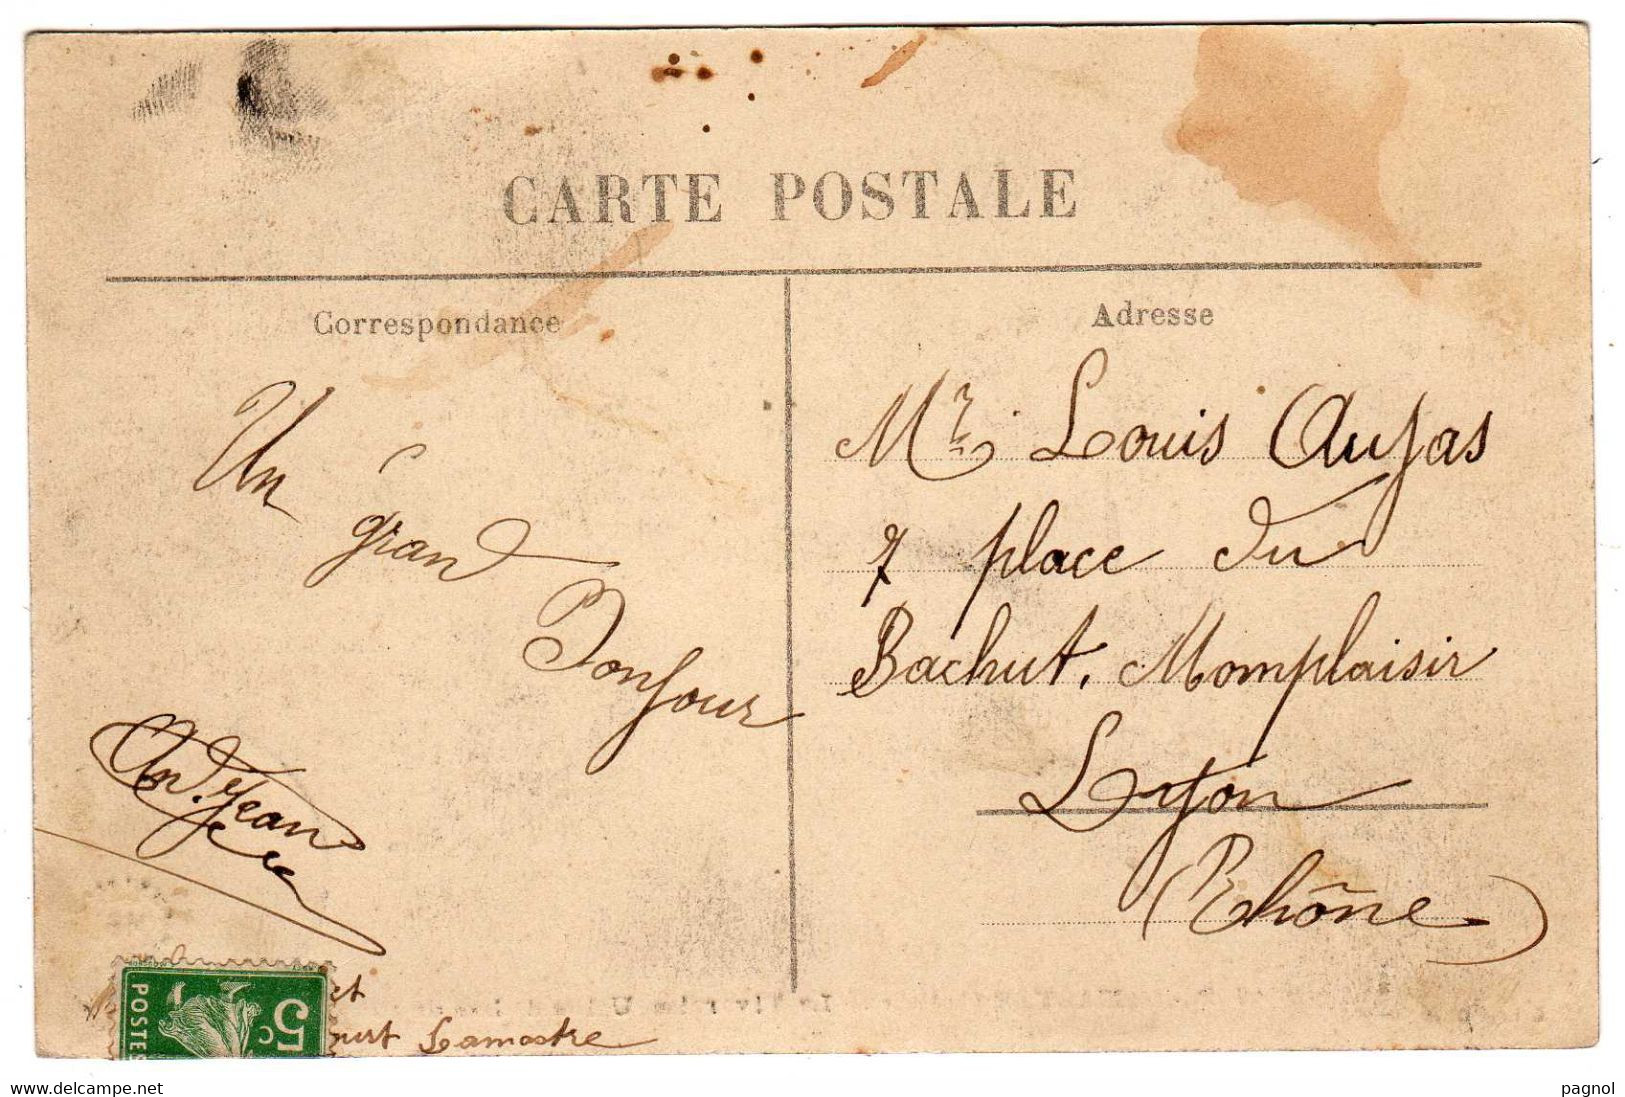 CARTE POSTALE
Correspondance
Adresse
Un
grand
Bonjour
And. Jean
et
Lamastre
5c
POSTES
Mr. Louis Aujas
7 place du
Bachut. Momplaisir
Lyon
(Rhône)
delcampe.net
pagnol